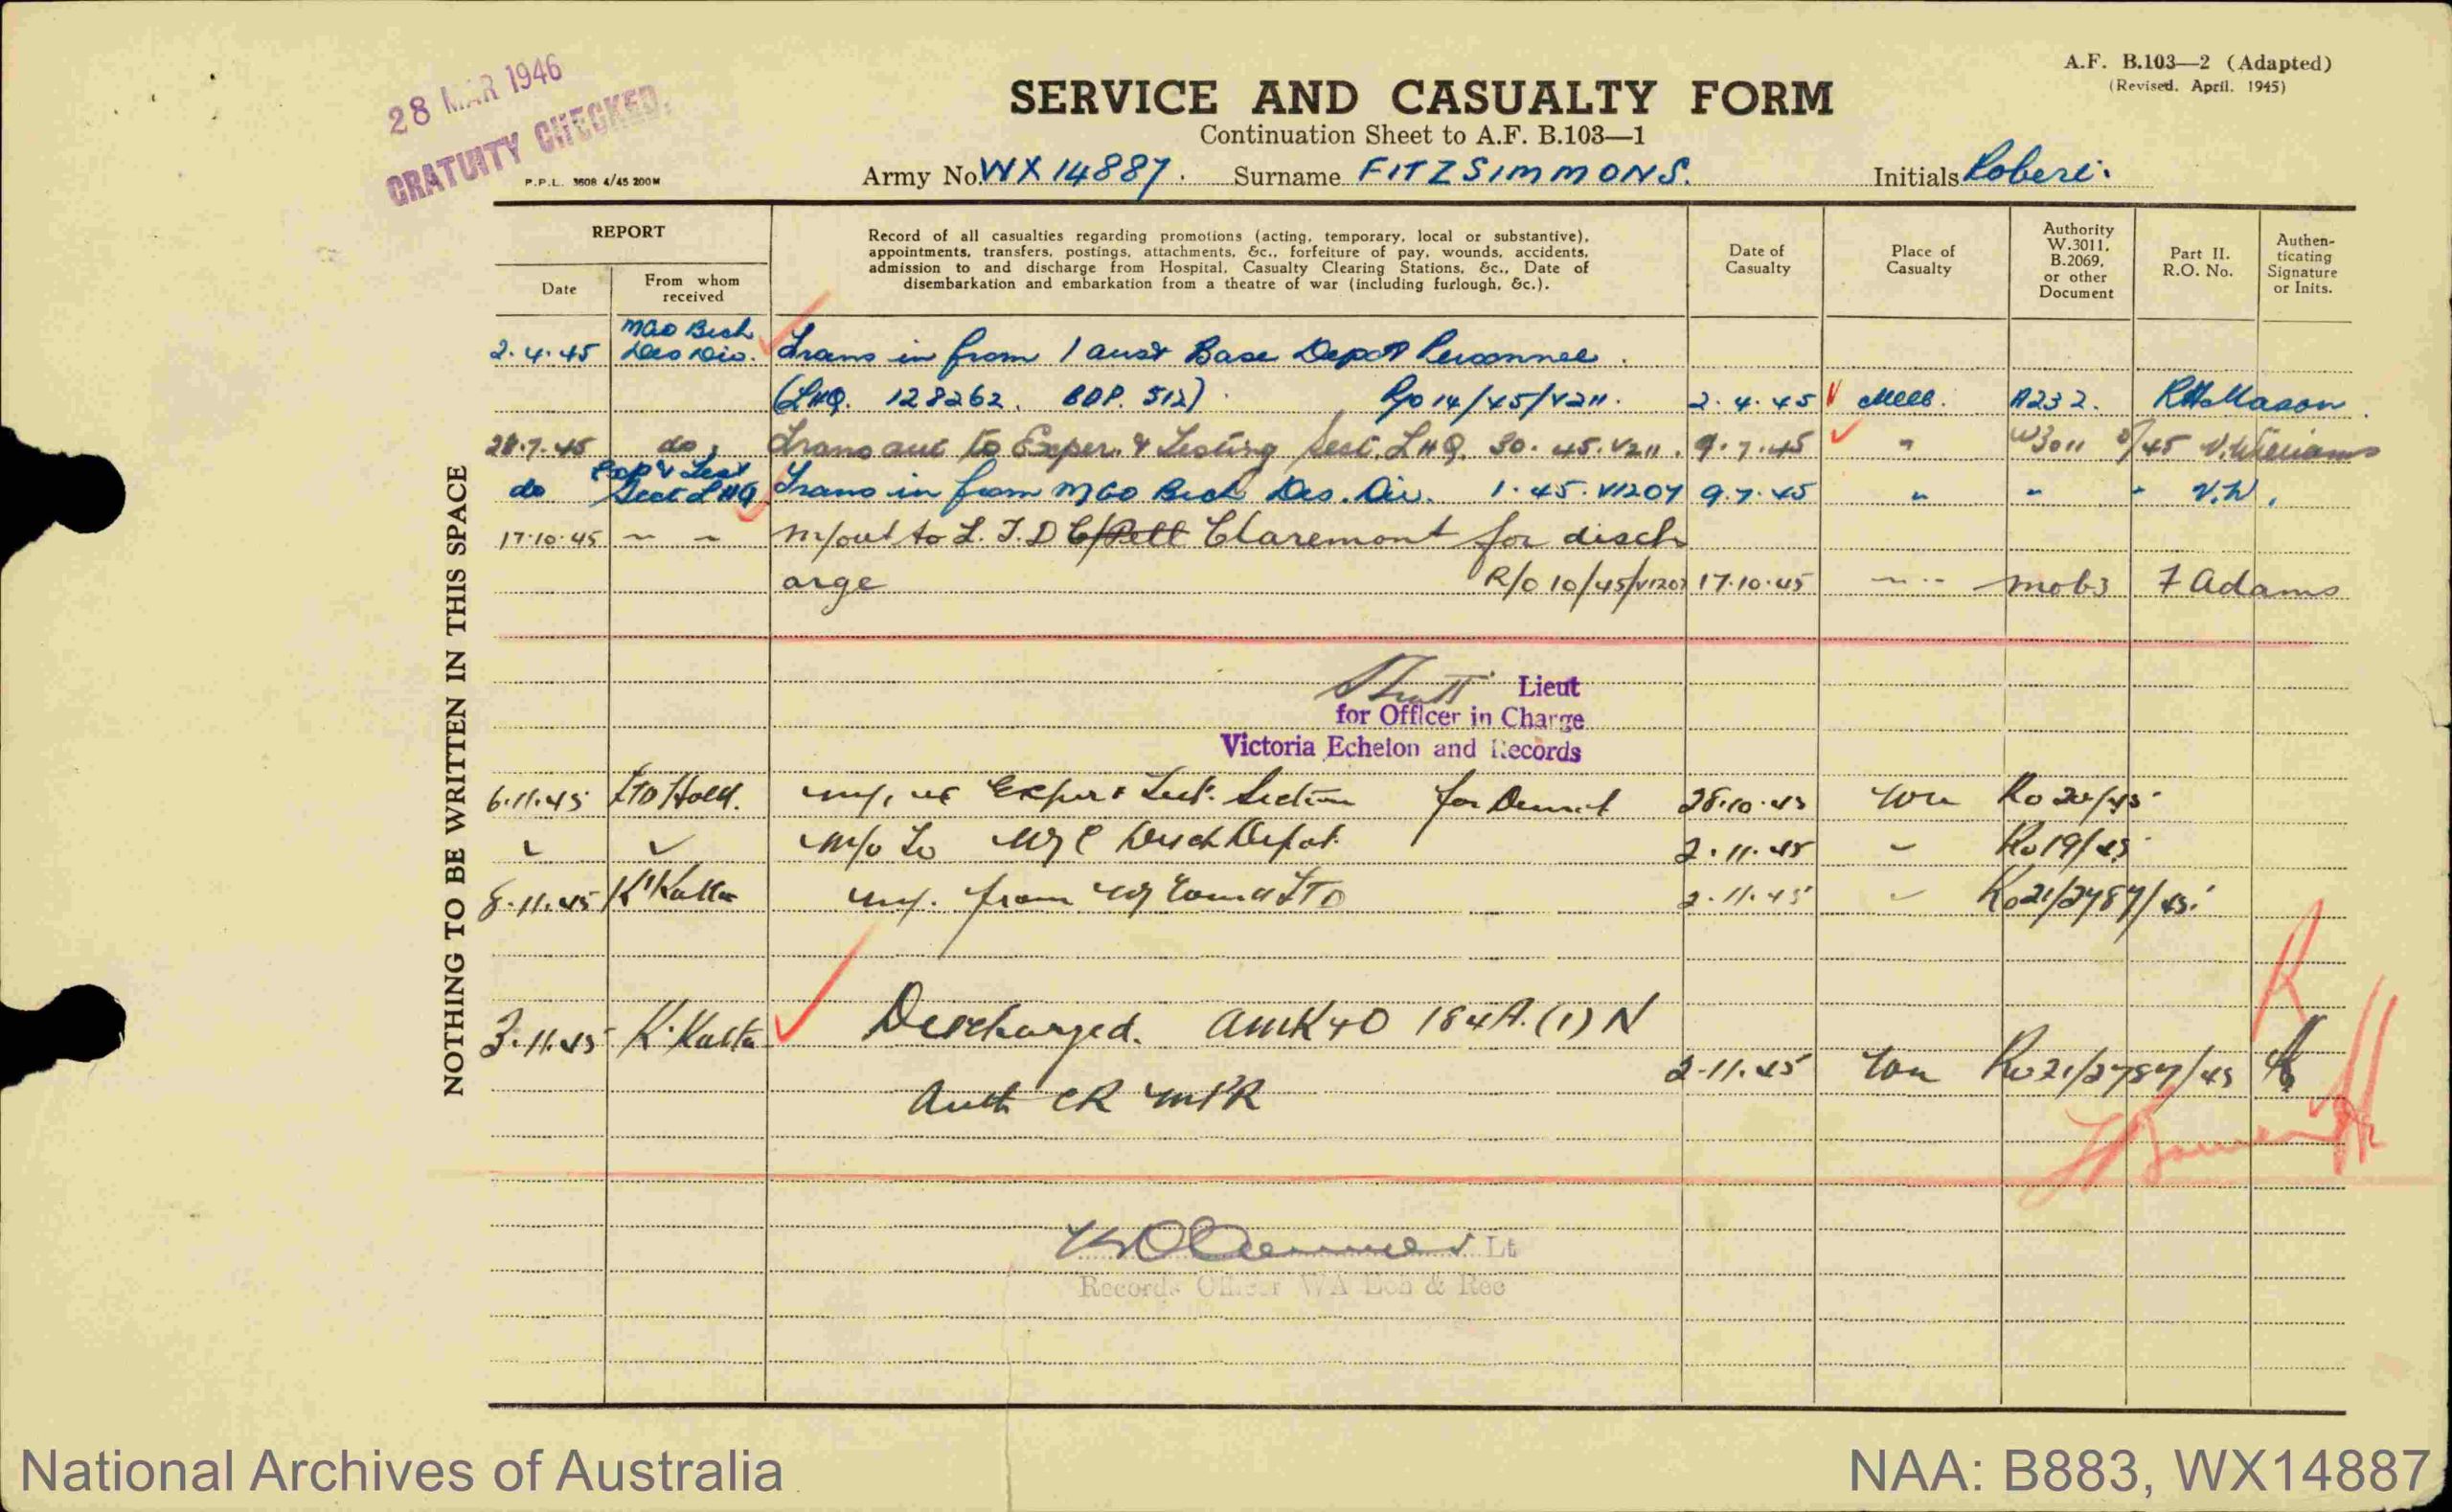 28 MAR 1946
GRATUITY CHECKED.
P.P.L. 3608 4/45 200M
A.F. B.103—2 (Adapted)
(Revised. April. 1945)
SERVICE AND CASUALTY FORM
Continuation Sheet to A.F. B.103—1
Army No. WX14887. Surname FITZSIMMONS. Initials Robert.
REPORT
Date
From whom received
Record of all casualties regarding promotions (acting, temporary, local or substantive),
appointments, transfers, postings, attachments, &c., forfeiture of pay, wounds, accidents,
admission to and discharge from Hospital, Casualty Clearing Stations, &c., Date of
disembarkation and embarkation from a theatre of war (including furlough, &c.).
Date of Casualty
Place of Casualty
Authority W.3011, B.2069, or other Document
Part II. R.O. No.
Authen-ticating Signature or Inits.
MGO Bch
2.4.45 Des Div. Trans in from 1 Aust Base Depot Personnel.
(LHQ. 128262. BDP. 512) R/o 14/45/V211. 2.4.45 Melb. A232. RH Mason.
28.7.45 do. Trans out to Exper. & Testing Sect. LHQ. 30.45.V211. 9.7.45 " W3011 /45 V. Williams
Exp & Test
do Sect LHQ Trans in from MGO Bch Des. Div. 1.45.V1207 9.7.45 " " " V.W.
17.10.45 ~ ~ M/out to L.T.D Claremont for disch
arge R/O 10/45/V1207 17.10.45 ~ ·· Mob3 F Adams
Lieut
for Officer in Charge
Victoria Echelon and Records
NOTHING TO BE WRITTEN IN THIS SPACE
6.11.45 LTD Exper & Test. Section for Demob 28.10.45 Ro 20/45
m/o to Disch Depot. 2.11.45 Ro 19/45
8.11.45 from LTD 2.11.45 Ro 21/2787/45
3.11.45 Discharged. AMR&O 184A.(1)N
2.11.45 Ro 21/2787/45
Auth CR
Lt
Records Officer WA Ech & Rec
National Archives of Australia
NAA: B883, WX14887